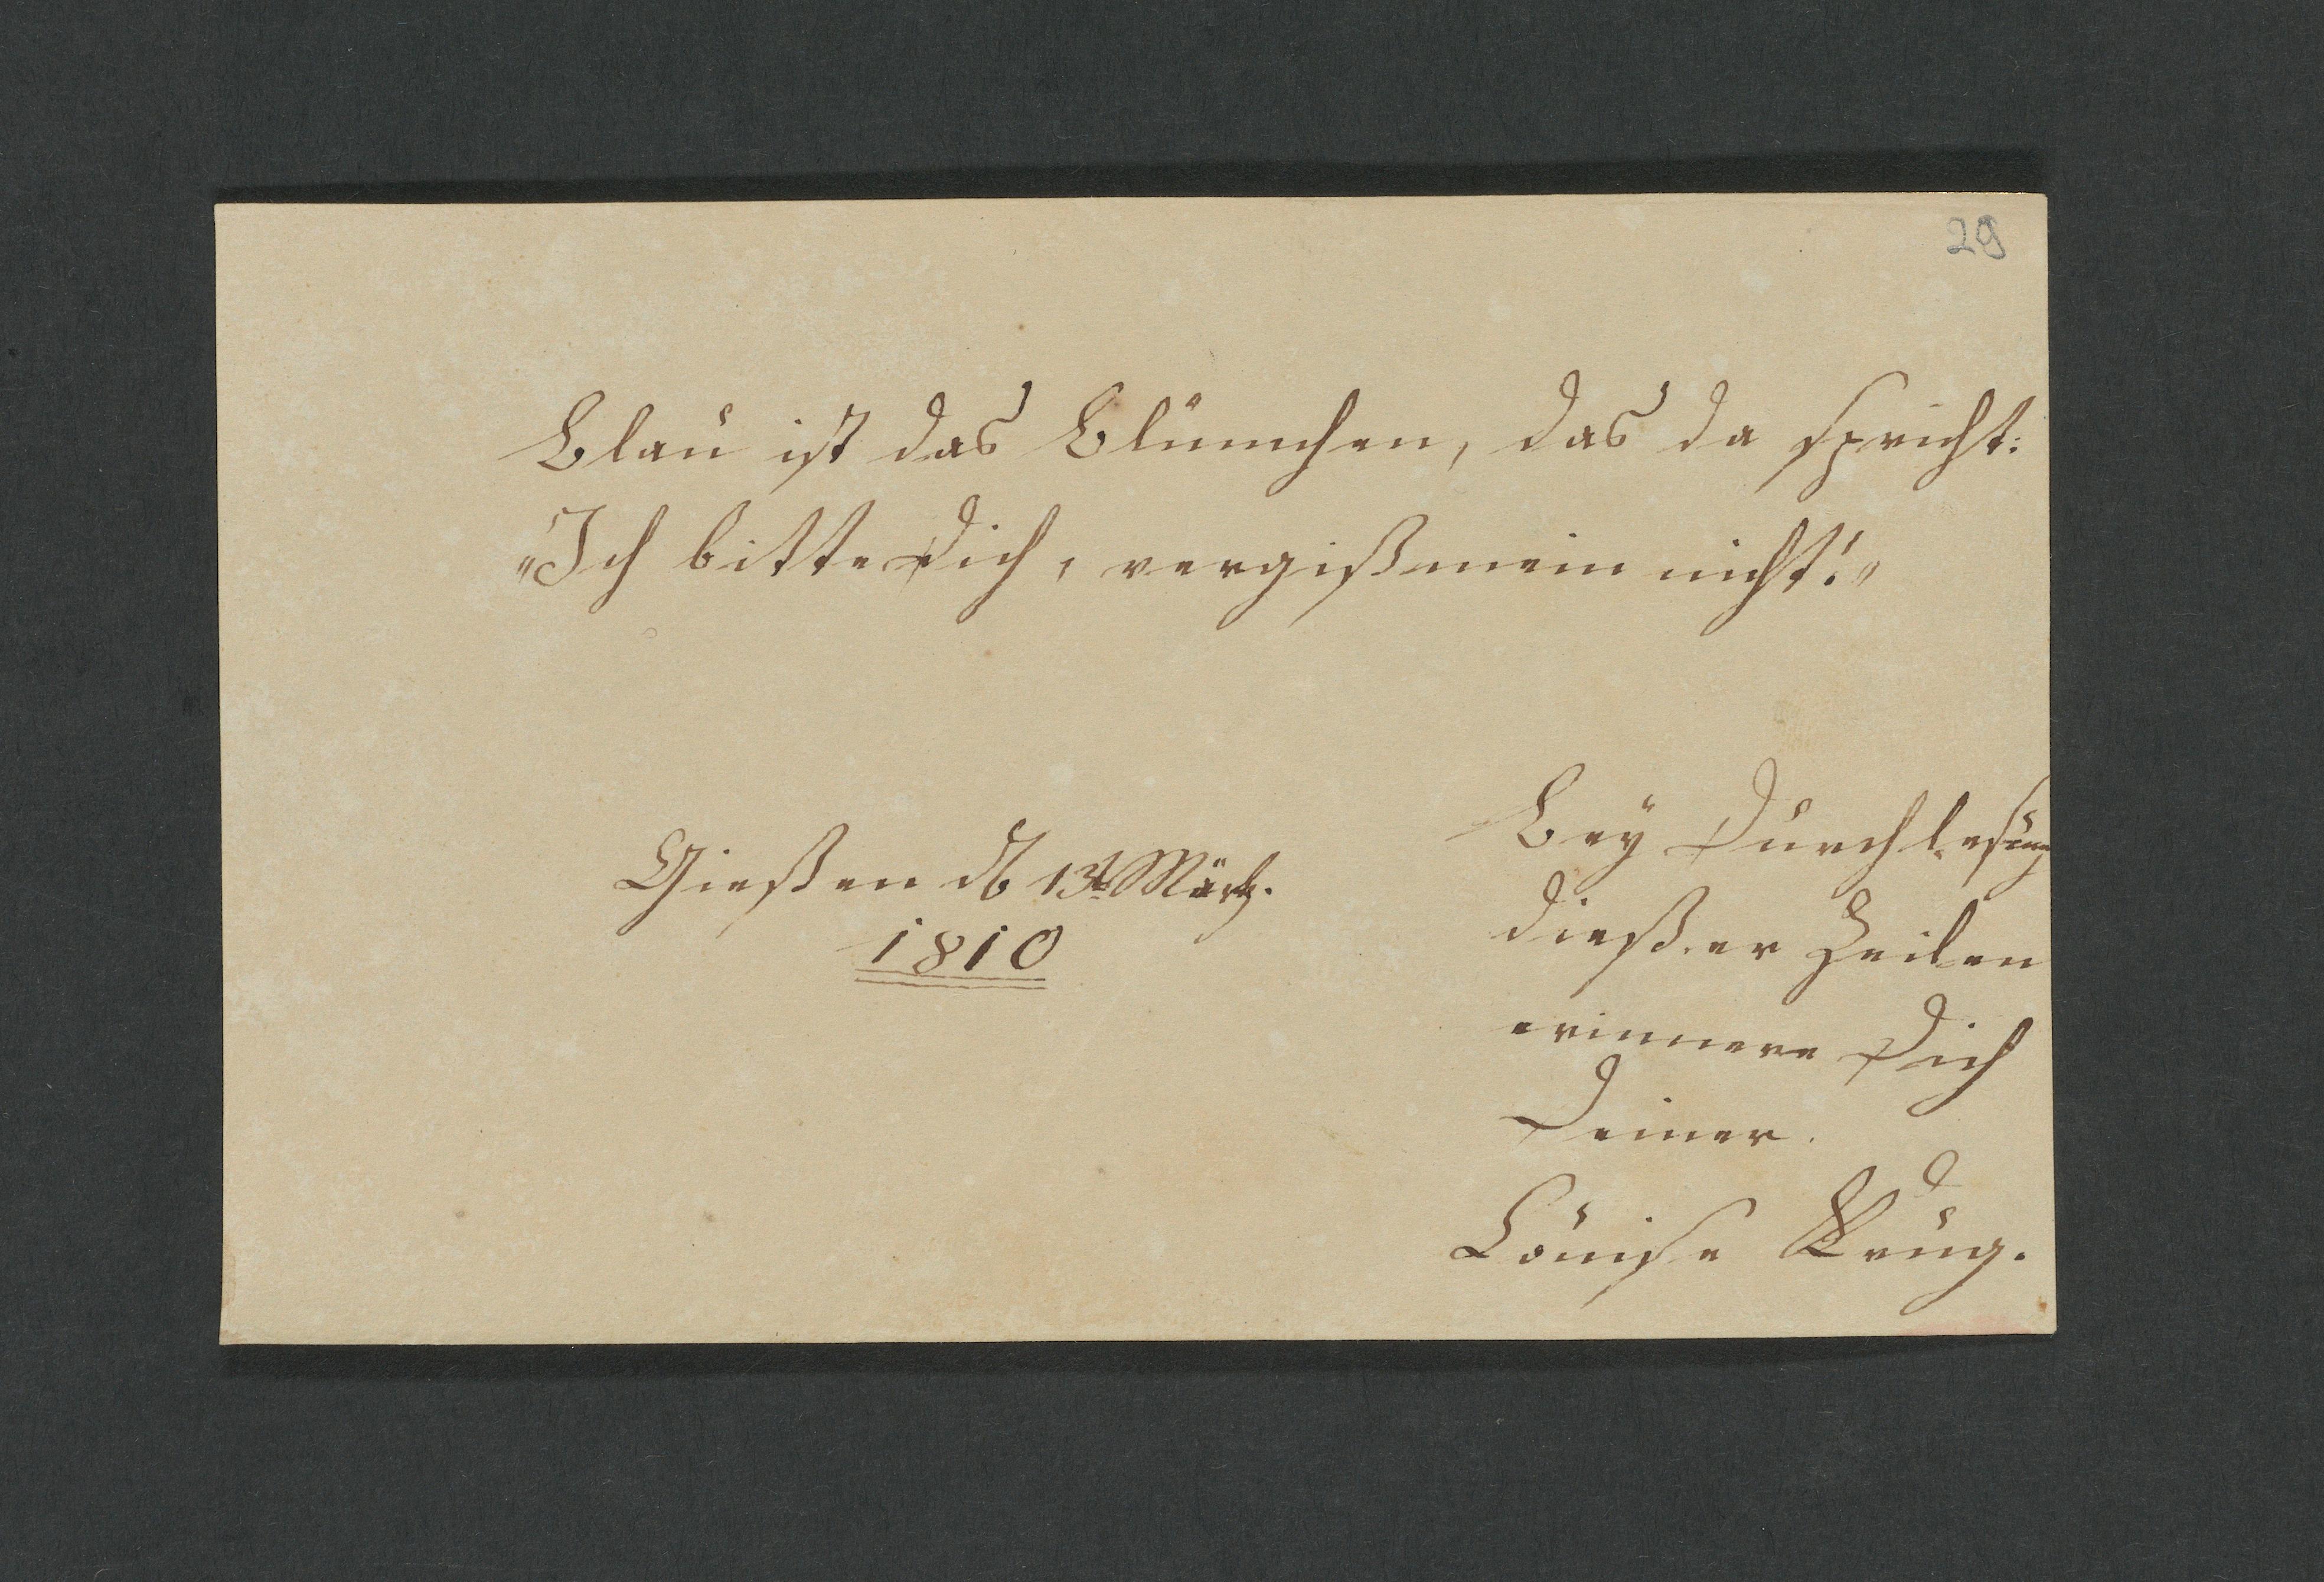 29
Blau ist das Blümchen, das da spricht:
"Ich bitte Dich, vergißmein nicht!"
Bey Durchlesung
Gießen d 13t März.
dießer Zeilen
1810
erinnere Dich
Deiner.
Louise Krug.